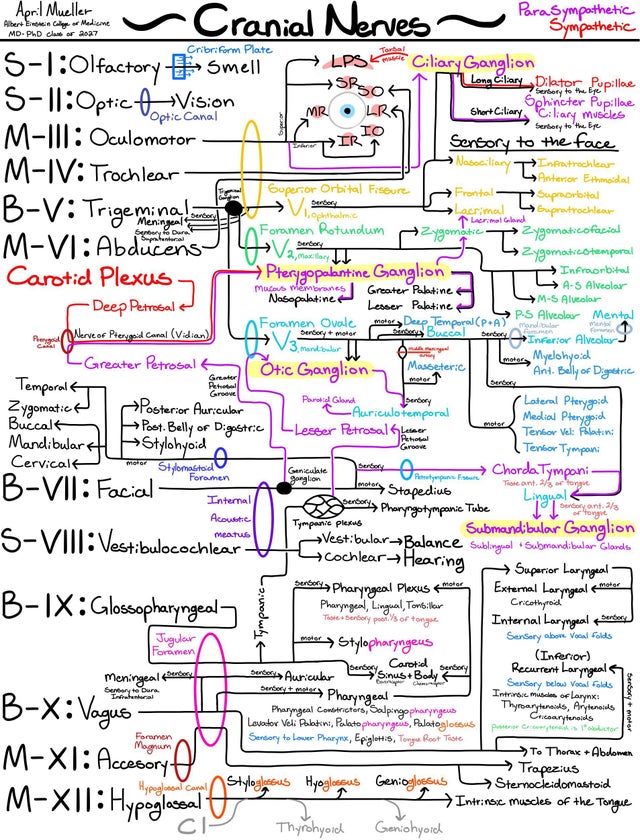 April Mueller
Albert Einstein College of Medicine
MD-PhD Class of 2027
Cranial Nerves
ParaSympathetic
Sympathetic
S-I: Olfactory
Cribriform Plate
Smell
S-II: Optic
Vision
Optic Canal
M-III: Oculomotor
Superior
Inferior
M-IV: Trochlear
LPS
Tarsal muscle
SR
SO
MR
LR
IR
IO
Ciliary Ganglion
Long Ciliary
Dilator Pupillae
Sensory to the Eye
Short Ciliary
Sphincter Pupillae
Ciliary muscles
Sensory to the Eye
Sensory to the Face
Nasociliary
Infratrochlear
Anterior Ethmoidal
Frontal
Supraorbital
Lacrimal
Supratrochlear
Lacrimal Gland
B-V: Trigeminal
Trigeminal Ganglion
Meningeal
Sensory
Sensory to Dura
Supratentorial
Superior Orbital Fissure
Sensory
V1, Ophthalmic
M-VI: Abducens
Foramen Rotundum
Sensory
V2, Maxillary
Zygomatic
Zygomaticofacial
Zygomaticotemporal
Sensory
Infraorbital
A-S Alveolar
M-S Alveolar
P-S Alveolar
Carotid Plexus
Deep Petrosal
Pterygopalantine Ganglion
Mucous membranes
Nasopalatine
Greater Palatine
Lesser Palatine
Pterygoid Canal
Nerve of Pterygoid Canal (Vidian)
Greater Petrosal
Foramen Ovale
Sensory + motor
V3, mandibular
motor
Deep Temporal (P+A)
Buccal
Sensory
Mandibular Foramen
Mental
Mental Foramen
Inferior Alveolar
motor
Myelohyoid
Ant. Belly of Digastric
middle meningeal artery
Masseteric
motor
Otic Ganglion
Greater Petrosal Groove
Parotid Gland
Auriculotemporal
Sensory
Lesser Petrosal
Lesser Petrosal Groove
motor
Sensory
Lateral Pterygoid
Medial Pterygoid
Tensor Veli Palatini
Tensor Tympani
Temporal
Zygomatic
Buccal
Mandibular
Cervical
Posterior Auricular
Post. Belly of Digastric
Stylohyoid
motor
Stylomastoid Foramen
B-VII: Facial
Geniculate ganglion
Sensory
Petrotympanic Fissure
Chorda Tympani
Taste ant. 2/3 of tongue
Lingual
Sensory ant. 2/3 of tongue
motor
Stapedius
Sensory
Pharyngotympanic Tube
Tympanic plexus
Submandibular Ganglion
Sublingual + Submandibular Glands
Internal Acoustic meatus
S-VIII: Vestibulocochlear
Vestibular
Balance
Cochlear
Hearing
B-IX: Glossopharyngeal
Tympanic
Sensory
Pharyngeal Plexus
motor
Pharyngeal, Lingual, Tonsillar
Taste + Sensory post. 1/3 of tongue
motor
Stylopharyngeus
Jugular Foramen
Sensory
Carotid
Sinus + Body
Baroreceptor
Chemoreceptor
Meningeal
Sensory
Sensory to Dura
Infratentorial
Sensory
Auricular
Sensory + motor
Pharyngeal
Pharyngeal Constrictors, Salpingopharyngeus
Lavador Veli Palatini, Palatopharyngeus, Palatoglossus
Sensory to Lower Pharynx, Epiglottis, Tongue Root Taste
B-X: Vagus
Superior Laryngeal
External Laryngeal
motor
Cricothyroid
Internal Laryngeal
Sensory
Sensory above Vocal folds
(Inferior)
Recurrent Laryngeal
Sensory below Vocal folds
Intrinsic muscles of Larynx:
Thyroarytenoids, Arytenoids
Cricoarytenoids
posterior Cricoarytenoid is 1° abductor
Sensory + motor
To Thorax + Abdomen
Foramen Magnum
M-XI: Accesory
Trapezius
Sternocleidomastoid
M-XII: Hypoglossal
Hypoglossal Canal
Styloglossus
Hyoglossus
Genioglossus
Intrinsic muscles of the Tongue
C1
Thyrohyoid
Geniohyoid